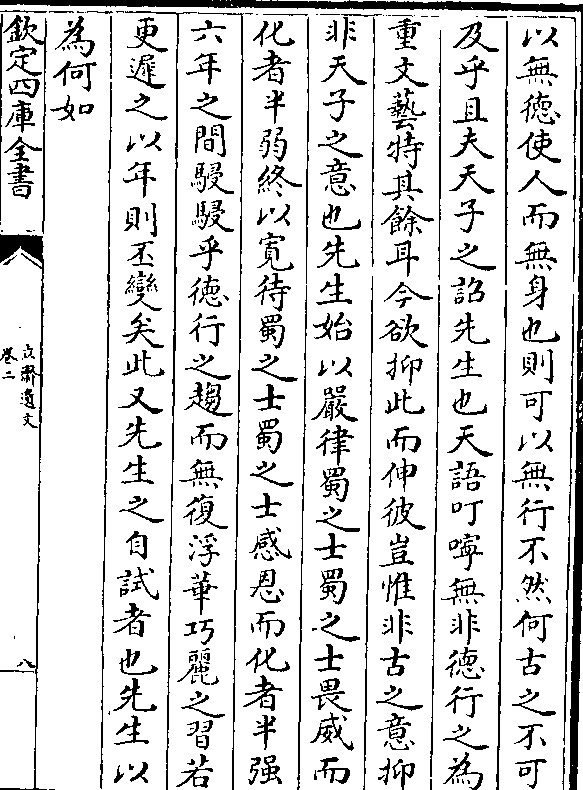 以無徳使人而無身也則可以無行不然何古之不可
及乎且夫天子之詔先生也天語叮嚀無非徳行之為
重文藝特其餘耳今欲抑此而伸彼豈惟非古之意抑
非天子之意也先生始以嚴律蜀之士蜀之士畏威而
化者半弱終以寛待蜀之士蜀之士感恩而化者半强
六年之間駸駸乎徳行之趨而無復浮華巧麗之習若
更遲之以年則丕變矣此又先生之自試者也先生以
為何如
欽定四庫全書
立齋遺文
卷二
八